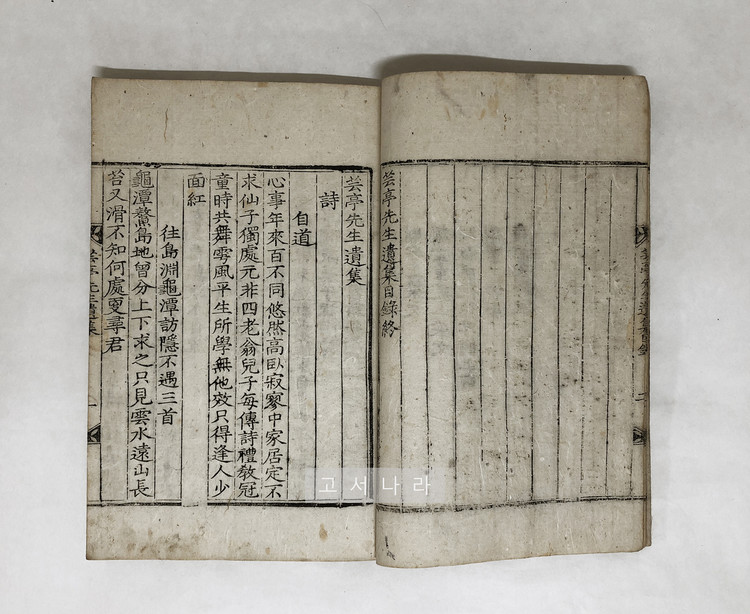 芸亭先生遺集目錄
二
芸亭先生遺集目錄終
芸亭先生遺集
詩
自道
心事年來百不同悠然高臥寂寥中家居定不
求仙子獨處元非四老翁兒子每傳詩禮敎冠
童時共舞雩風平生所學無他效只得逢人少
面紅
往島淵龜潭訪隱不遇三首
龜潭鰲島地曾分上下求之只見雲水遠山長
苔又滑不知何處更尋君
芸亭先生遺集
一
고서나라